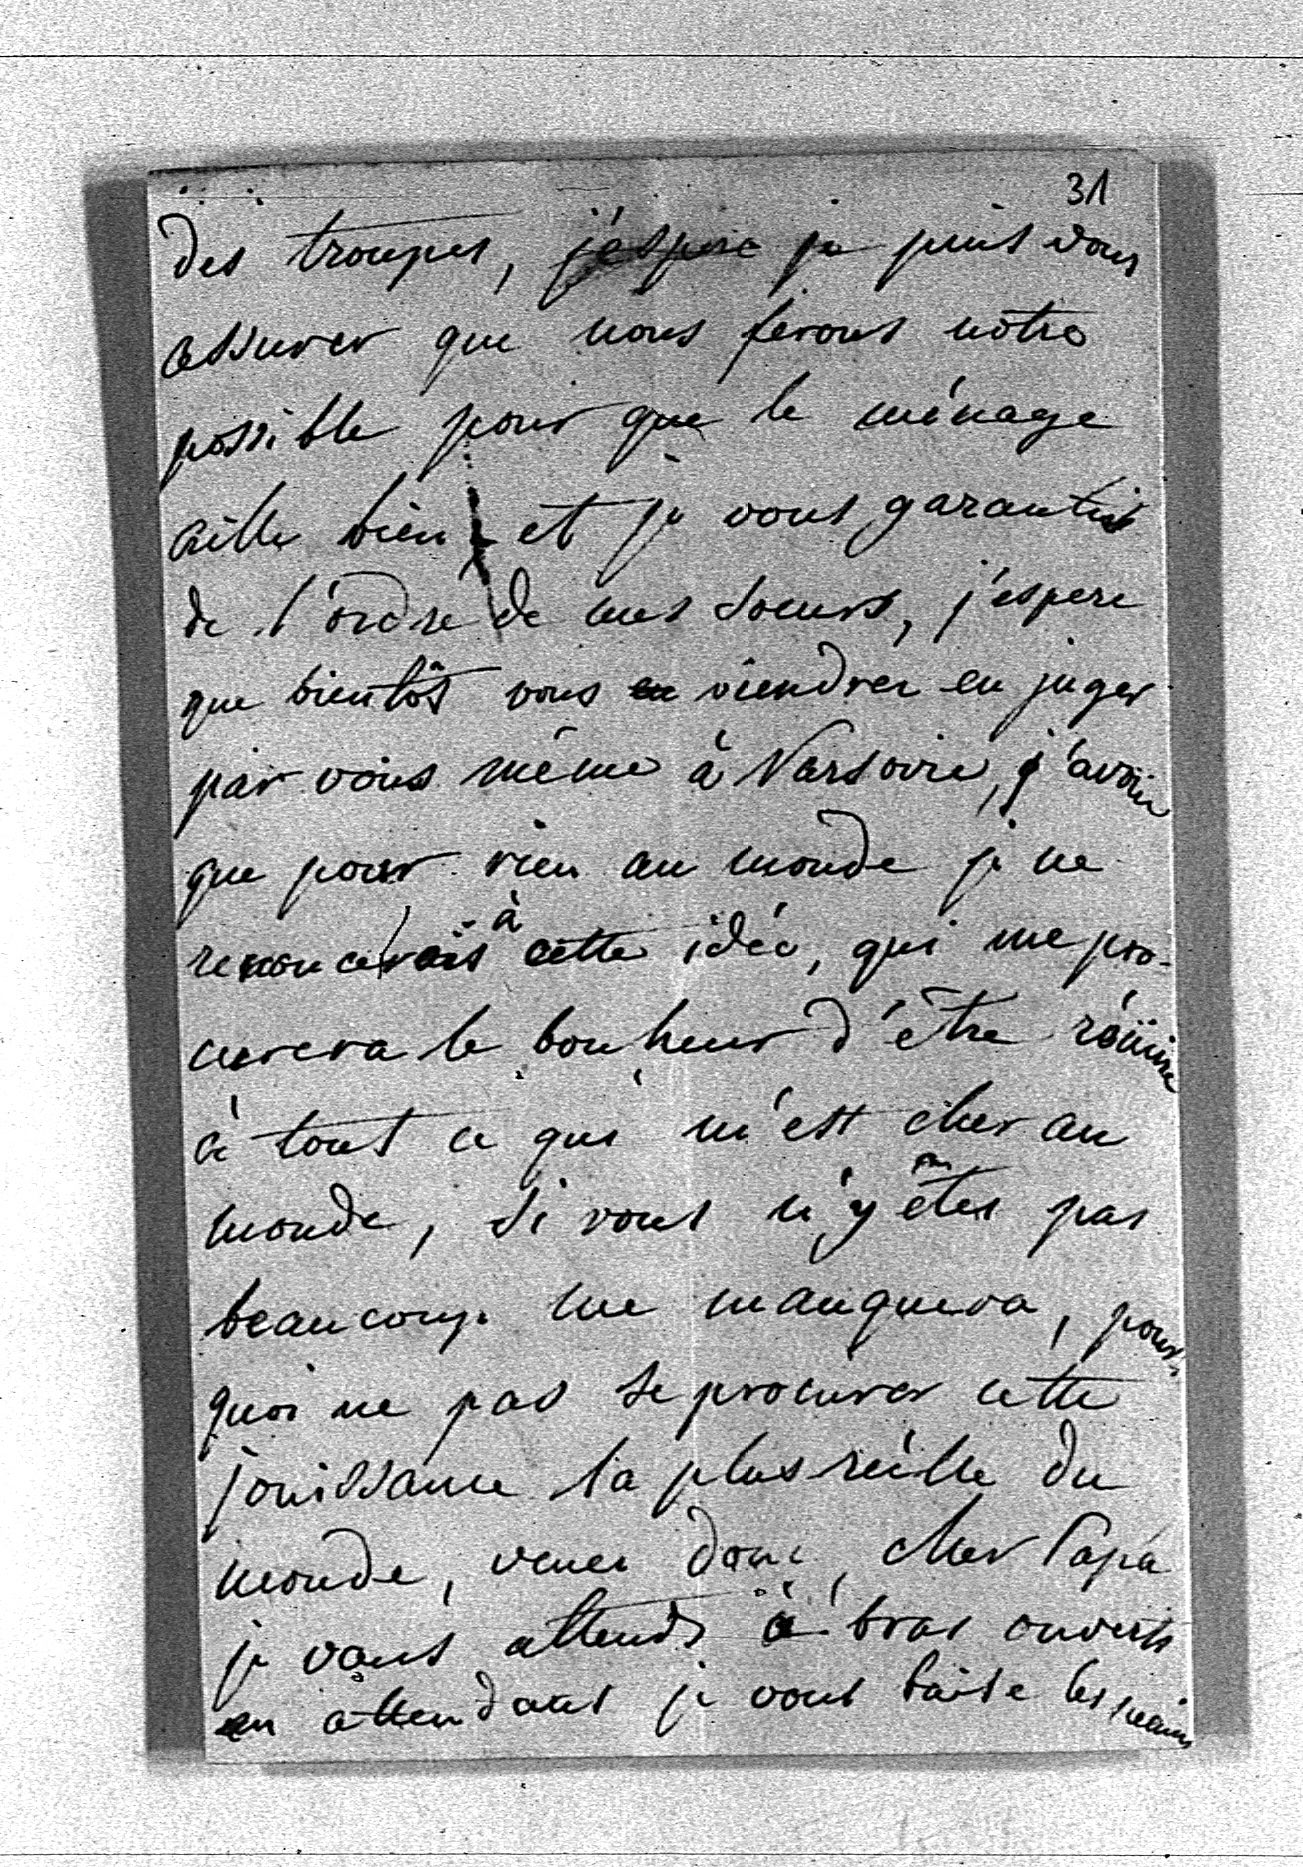 31
des troupes, j'éspère je puis vous
assurer que nous ferons notre
possible pour que le ménage
aille bien et je vous garantis
de l'ordre de mes soeurs, j'espere
que bientôt vous en viendréz en juger
par vous même à Varsovie, j'avoue
que pour rien au monde je ne
renoncerais à cette idée, qui me pro-
curera le bonheur d'être réünie
à tout ce qui m'est cher au
monde, si vous n'y êtes pas
beaucoup me manquera, pour-
quoi ne pas se procurer cette
jouissance la plus réelle du
monde, venez donc, cher Papa
je vous attends à bras ouverts
en attendant je vous baise les mains